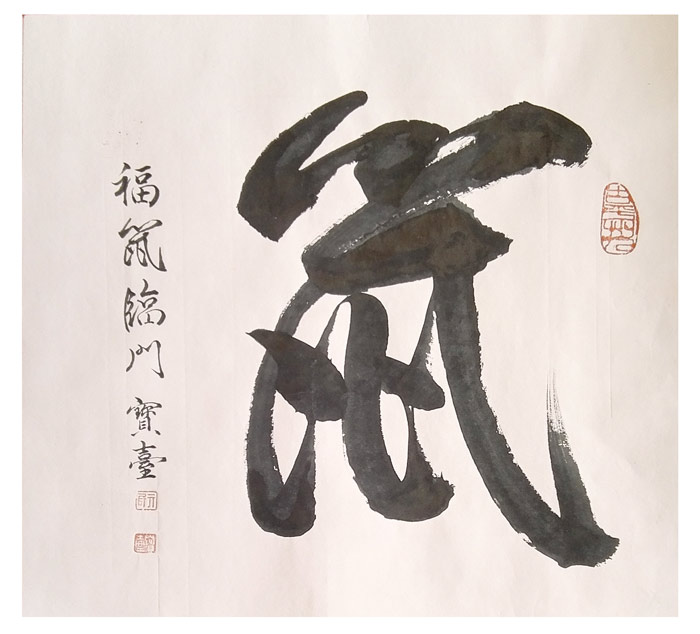 鼠
福鼠臨門 寶臺